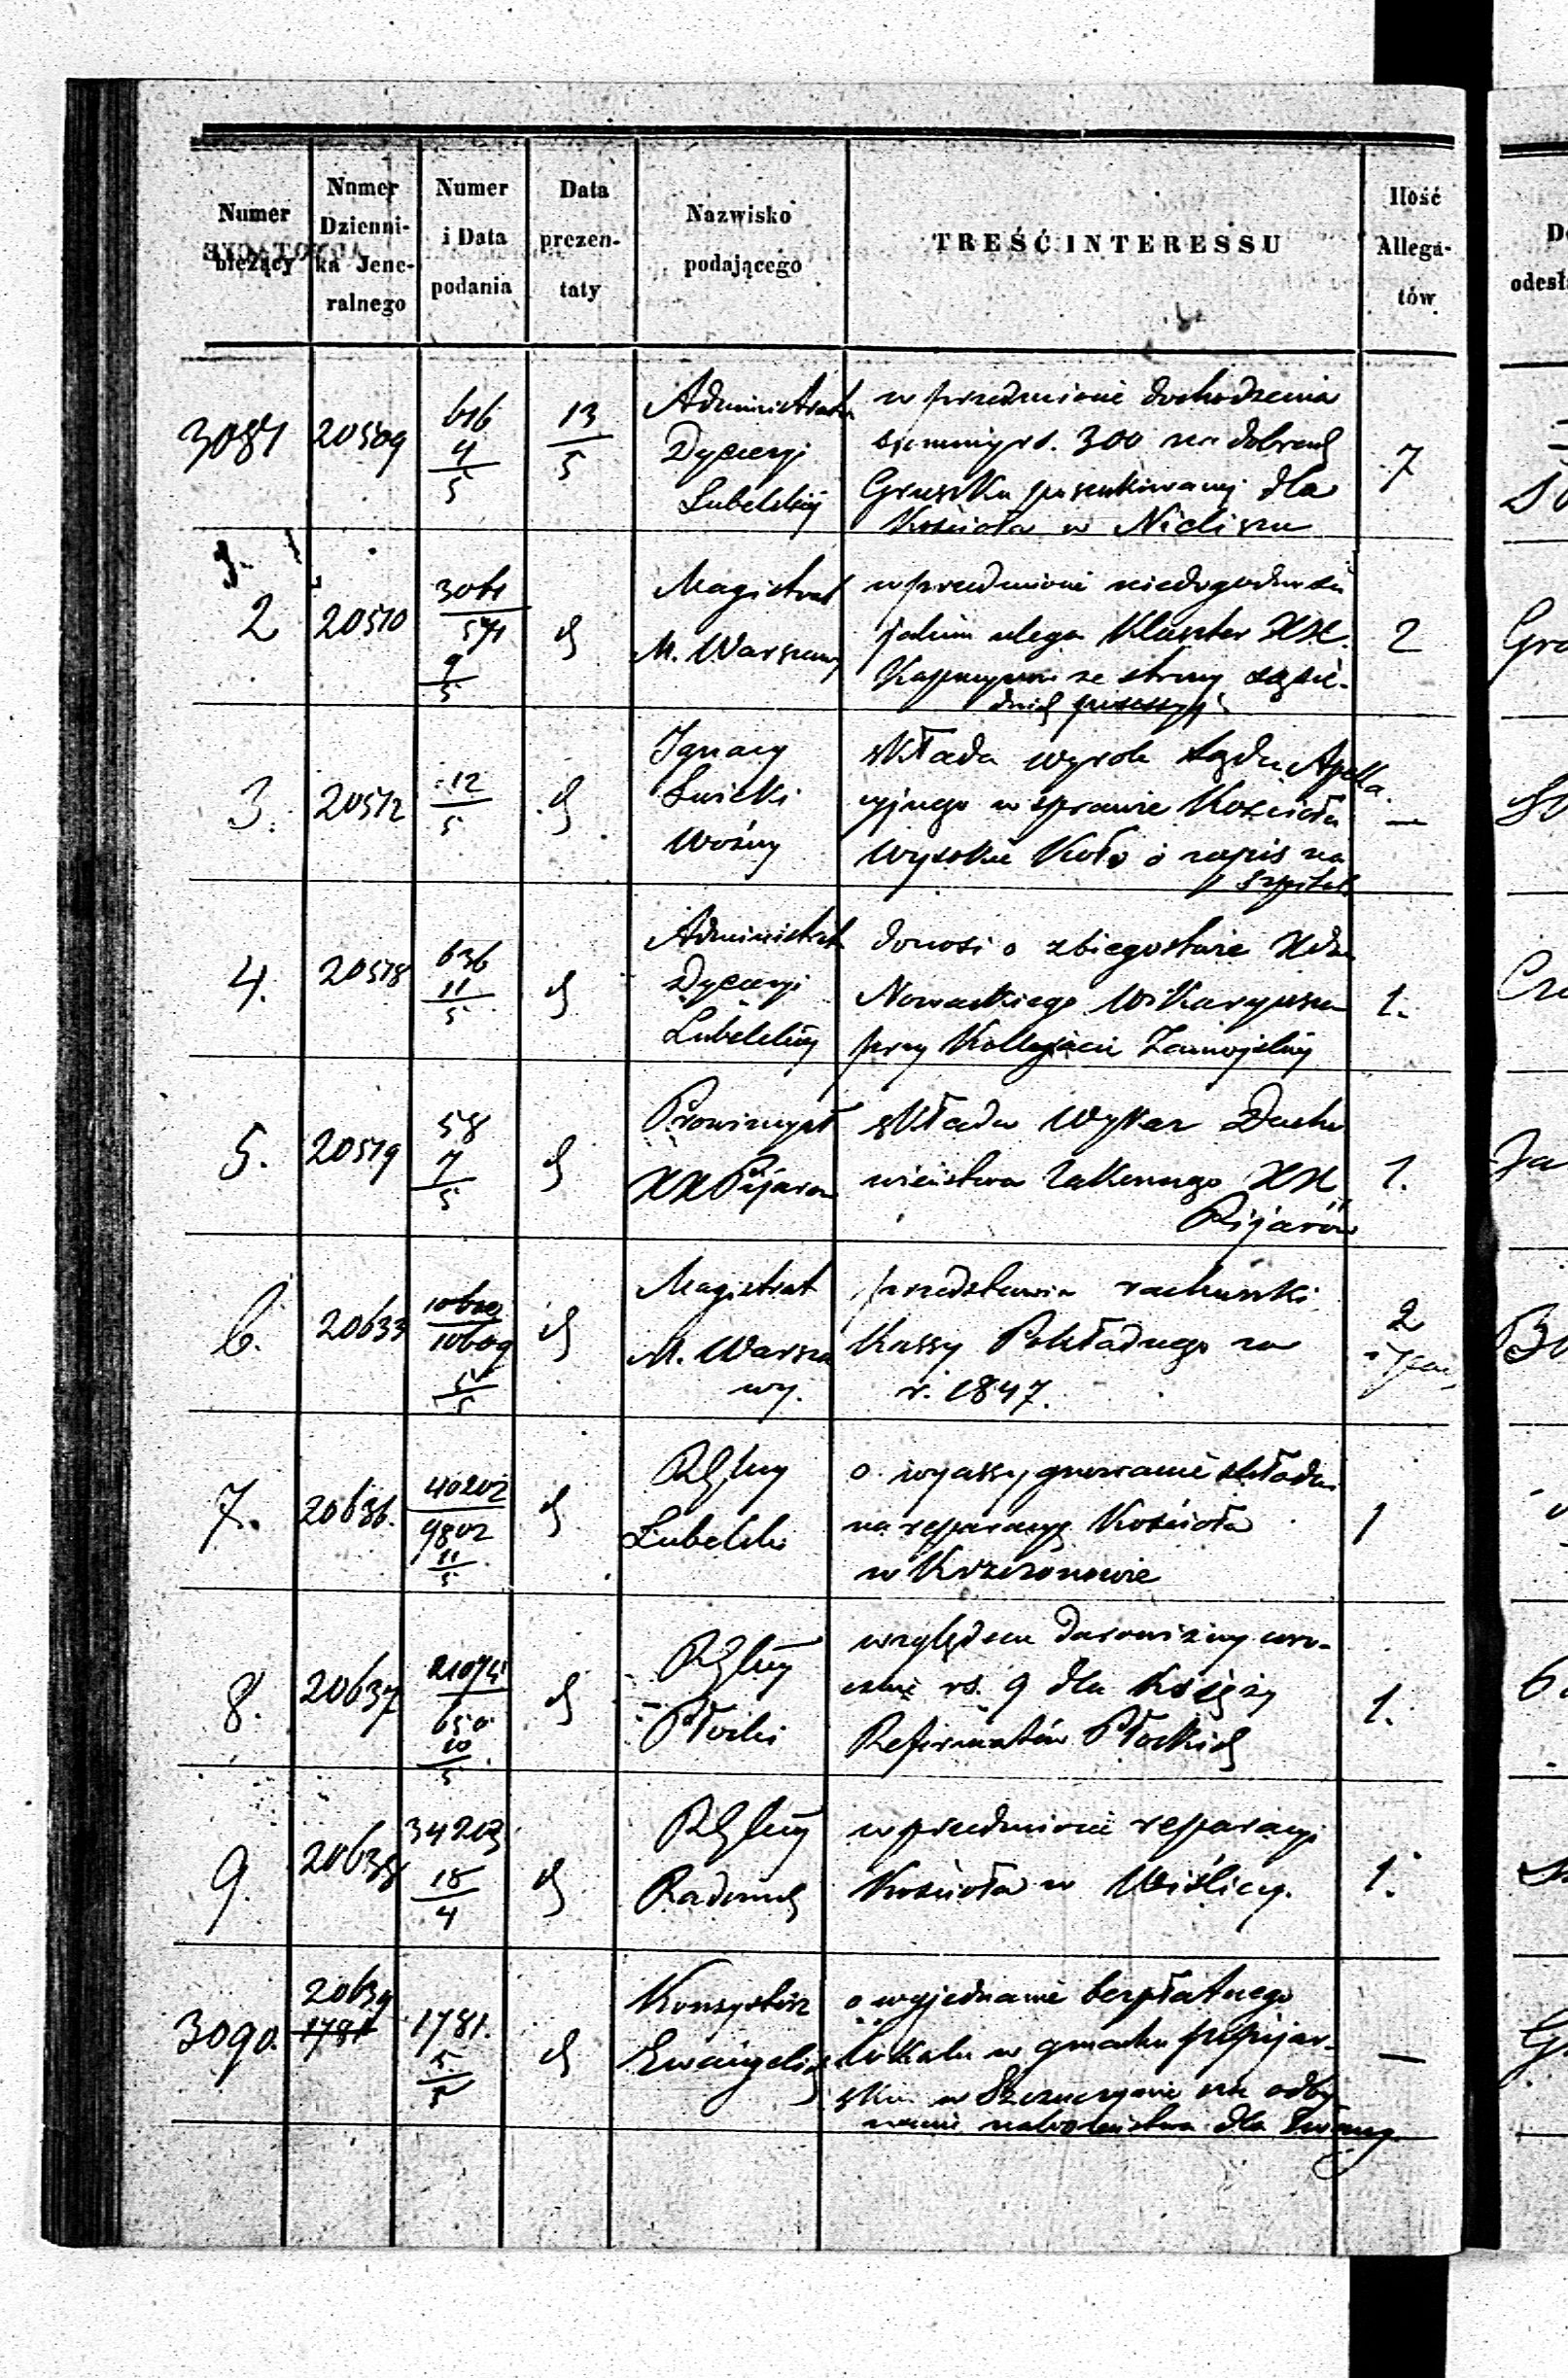 Numer bieżący
Nnmer Dzienni- ka Jene- ralnego
Numer i Data podania
Data prezen- taty
Nazwisko podającego
TREŚĆ INTERESSU
Ilość Allega- tów
3081 20509 616 4/5 13/5
Administrator
Dyecezyi
Lubelskiej
w przedmiocie dochodzenia
summy rs. 300 na dobrach
Gruszka poszukiwanej dla
Kościoła w Nieliszu
7
2 20510 3061 9/5 d
Magistrat
M. Warszawy
w przedmiocie niedogodności
jakim ulega Klasztor XX.
Kapucynów ze strony sąsie-
dnich possessyj
2
3. 20512 12/5 d
Ignacy
Woźny
składa wyrok Sądu Apella
cyjnego w sprawie Kościoła
Wysokie Koło o zapis na
Szpital
—
4. 20518 636 11/5 d
Administrat
Dyecezyi
Lubelskiej
donosi o zbiegostwie Xdza
Nowackiego Wikaryusza
przy Kollegiacie Zamojskiej
1.
5. 20519 58 7/5 d
Prowincyał
XX Pijarów
składa Wykaz Ducho
wieństwa Zakonnego XX
Pijarów
1.
6. 20633 10609 d
Magistrat
M. Warsza
wy.
przedstawia rachunki
Kassy Pokładnego za
r. 1847.
2
7. 20636. 40202 9802 11/5 d
Lubelski
o wyassygnowanie składki
na reparacyę Kościoła
w Krzczonowie
1
8. 20637 21074 650 10/5 d
Płocki
względem darowizny coro-
cznie rs. 9 dla Księży
Reformatów Płockich
1.
9. 20638 34203 18/4 d
Radoms
w przedmiocie reparacyi
Kościoła w Wiślicy.
1.
3090. 20639 1781 1781. 5/5 d
Konsystorz
Ewangelic
o wyjednanie bezpłatnego
lokalu w gmachu popijar-
skim w Szczuczynie na odby
wanie nabożeństwa dla Ewang.
—